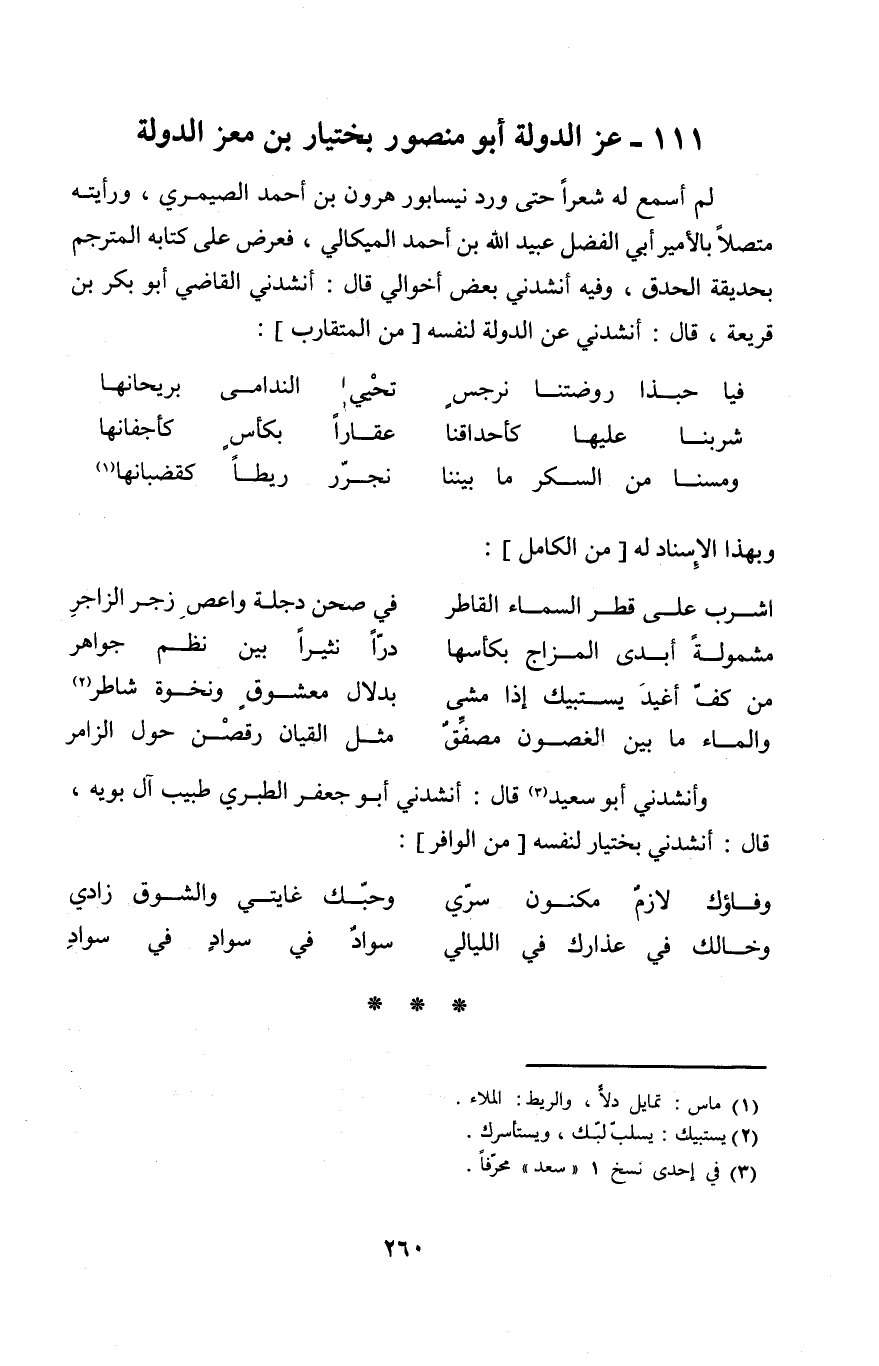 ١١١ ـ عز الدولة أبو منصور بختيار بن معز الدولة
لم أسمع له شعراً حتى ورد نيسابور هرون بن أحمد الصيمري ، ورأيته
متصلاً بالأمير أبي الفضل عبيد الله بن أحمد الميكالي ، فعرض على كتابه المترجم
بحديقة الحدق ، وفيه أنشدني بعض أخوالي قال : أنشدني القاضي أبو بكر بن
قريعة ، قال : أنشدني عن الدولة لنفسه [ من المتقارب ] :
فيا حبذا روضتنا نرجسٍ تحْيي الندامى بريحانها
شربنا عليها كأحداقنا عقاراً بكأسٍ كأجفانها
ومسنا من السكر ما بيننا نجرّر ريطاً كقضبانها(١)
وبهذا الإسناد له [ من الكامل ] :
اشرب على قطر السماء القاطر في صحن دجلة واعصِ زجر الزاجرِ
مشمولةً أبدى المزاج بكأسها درّاً نثيراً بين نظم جواهر
من كفّ أغيدَ يستبيك إذا مشى بدلال معشوقٍ ونخوة شاطر(٢)
والماء ما بين الغصون مصفِّقٌ مثل القيان رقصْن حول الزامر
وأنشدني أبو سعيد(٣) قال : أنشدني أبو جعفر الطبري طبيب آل بويه ،
قال : أنشدني بختيار لنفسه [ من الوافر ] :
وفاؤك لازمٌ مكنون سرّي وحبّك غايتي والشوق زادي
وخالك في عذارك في الليالي سوادٌ في سوادٍ في سوادِ
* * *
(١) ماس : تمايل دلاًّ ، والريط : الملاء .
(٢) يستبيك : يسلب لبّك ، ويستأسرك .
(٣) في إحدى نسخ ١ « سعد » محرّفاً .
٢٦٠